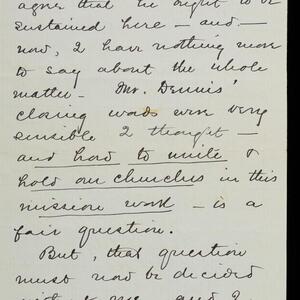 agree that he ought to be
sustained here – and –
now, I have nothing more
to say about the whole
matter – Mr. Dennis'
closing words were very
sensible I thought –
and how to unite &
hold our churches in this
mission work – is a
fair question.
But, that question
must now be decided